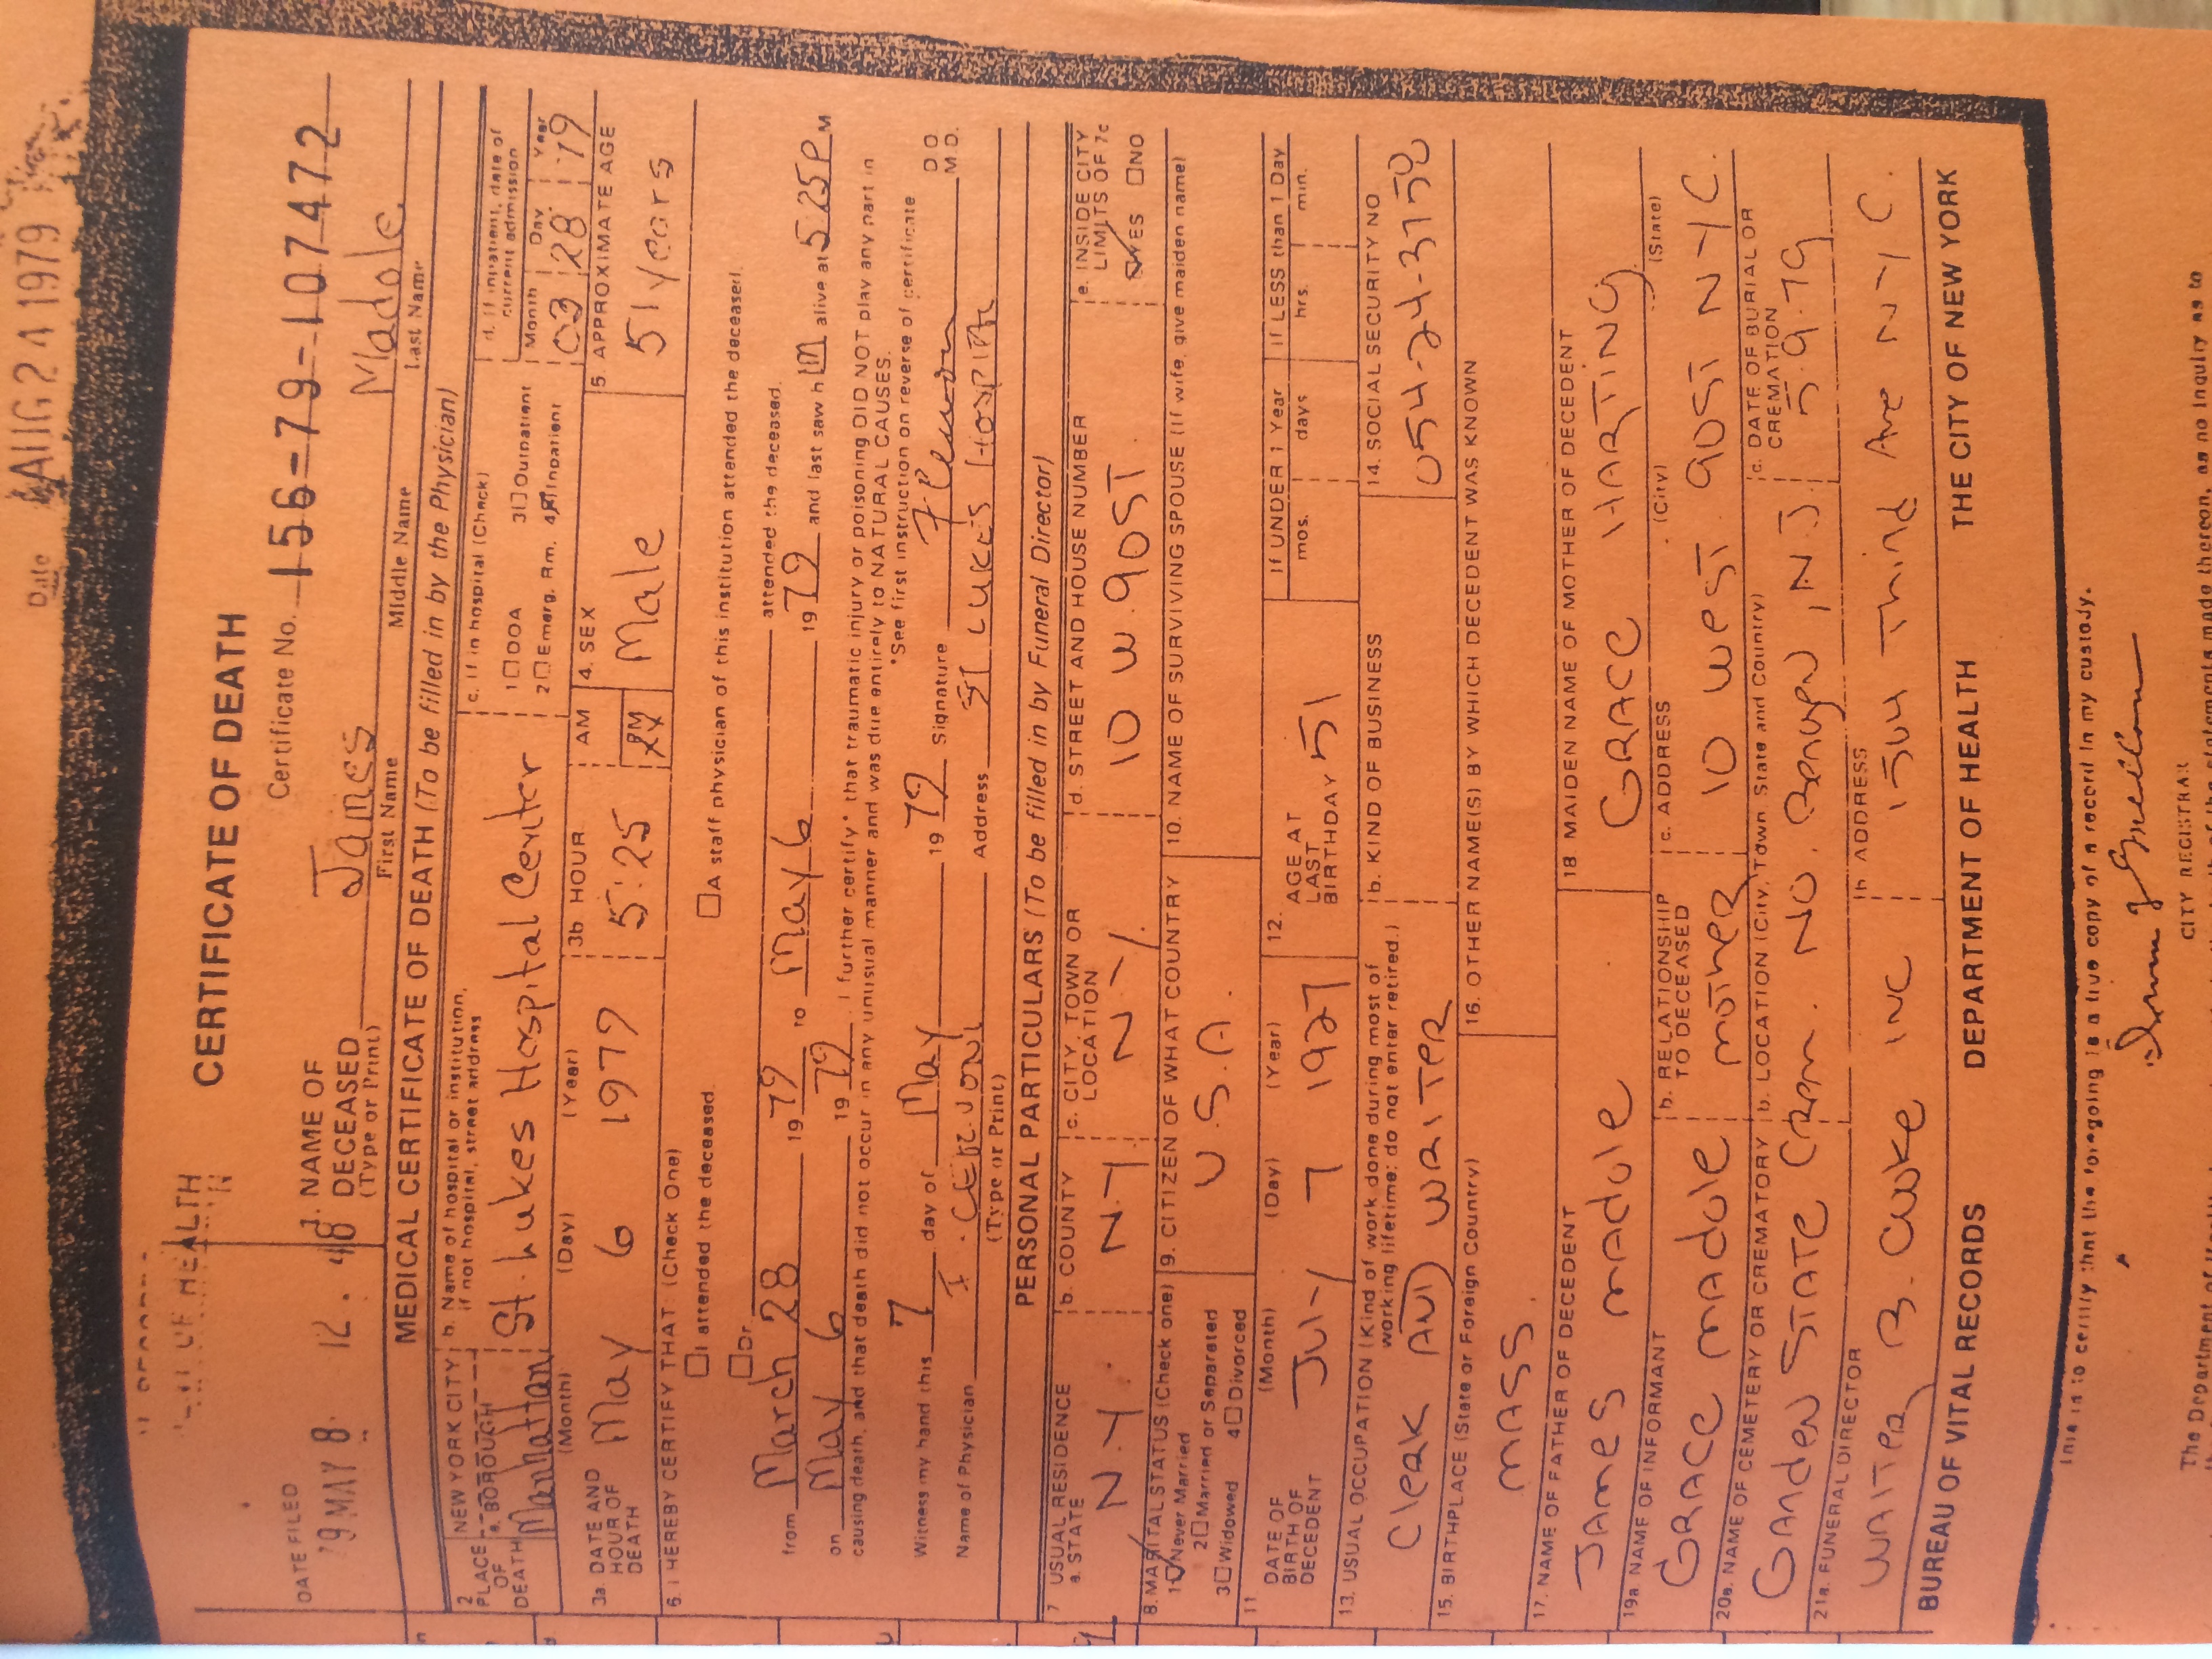 Date AUG 24 1979
OF HEALTH
CERTIFICATE OF DEATH
DATE FILED
'79 MAY 8 12 . 48
Certificate No. 156-79-107472
1. NAME OF DECEASED (Type or Print) James Madole
First Name Middle Name Last Name
MEDICAL CERTIFICATE OF DEATH (To be filled in by the Physician)
2 PLACE OF DEATH
NEW YORK CITY
a. BOROUGH Manhattan
b. Name of hospital or institution, if not hospital, street address
St. Lukes Hospital Center
c. If in hospital (Check)
1 ☐ DOA 3 ☐ Outpatient
2 ☐ Emerg. Rm. 4 ☒ Inpatient
d. If inpatient, date of current admission
Month Day Year
03 28 79
3a. DATE AND HOUR OF DEATH
(Month) (Day) (Year)
May 6 1979
3b HOUR 5:25 AM PM
4. SEX Male
5. APPROXIMATE AGE 51 years
6. I HEREBY CERTIFY THAT: (Check One)
☐ I attended the deceased. ☐ A staff physician of this institution attended the deceased.
☐ Dr. attended the deceased.
from March 28 1979 to May 6 1979 and last saw h m alive at 525P M
on May 6 1979. I further certify* that traumatic injury or poisoning DID NOT play any part in
causing death, and that death did not occur in any unusual manner and was due entirely to NATURAL CAUSES.
*See first instruction on reverse of certificate
Witness my hand this 7 day of May 1979 Signature D O M.D.
Name of Physician I. Address St Lukes Hospital
(Type or Print)
PERSONAL PARTICULARS (To be filled in by Funeral Director)
7 USUAL RESIDENCE
a. STATE N.Y.
b. COUNTY N.Y.
c. CITY, TOWN OR LOCATION N.Y.
d. STREET AND HOUSE NUMBER 10 W. 90ST.
e. INSIDE CITY LIMITS OF 7c ☑ YES ☐ NO
8. MARITAL STATUS (Check one)
1 ☑ Never Married
2 ☐ Married or Separated
3 ☐ Widowed 4 ☐ Divorced
9. CITIZEN OF WHAT COUNTRY U.S.A.
10. NAME OF SURVIVING SPOUSE (If wife, give maiden name)
11 DATE OF BIRTH OF DECEDENT
(Month) (Day) (Year)
July 7 1927
12. AGE AT LAST BIRTHDAY 51
If UNDER 1 Year mos. days
If LESS than 1 Day hrs. min.
13. USUAL OCCUPATION (Kind of work done during most of working lifetime: do not enter retired.)
Clerk AND WRITER
b. KIND OF BUSINESS
14. SOCIAL SECURITY NO 054-24-3150
15. BIRTHPLACE (State or Foreign Country)
MASS
16. OTHER NAME(S) BY WHICH DECEDENT WAS KNOWN
17. NAME OF FATHER OF DECEDENT
JAMES MADOLE
18 MAIDEN NAME OF MOTHER OF DECEDENT
GRACE HARTING
19a. NAME OF INFORMANT
GRACE MADOLE
b. RELATIONSHIP TO DECEASED
MOTHER
c. ADDRESS (City) (State)
10 WEST 90ST NYC.
20a. NAME OF CEMETERY OR CREMATORY
GARDEN STATE CREM.
b. LOCATION (City, Town State and Country)
NO. Bergen N.J.
c. DATE OF BURIAL OR CREMATION
5.9.79
21a. FUNERAL DIRECTOR
WALTER B. COOKE INC
b ADDRESS
1504 Third Ave NYC.
BUREAU OF VITAL RECORDS DEPARTMENT OF HEALTH THE CITY OF NEW YORK
This is to certify that the foregoing is a true copy of a record in my custody.
CITY REGISTRAR